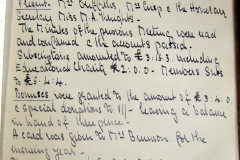 Present. Mrs Griffiths, Mrs Crisp & the Honorary
Secretary Miss M A Knights.
The Minutes of the previous Meeting were read
and confirmed & the amounts passed.
Subscriptions amounted to £3.13.3 including
Educational Charity £2.0.0. Members Subs
to £5.4.4.
Bonuses were granted to the amount of £3.4.0.
& special donations to 11/- leaving a balance
in hand of threepence.
A card was given to Mrs Brunson for the
ensuing year.